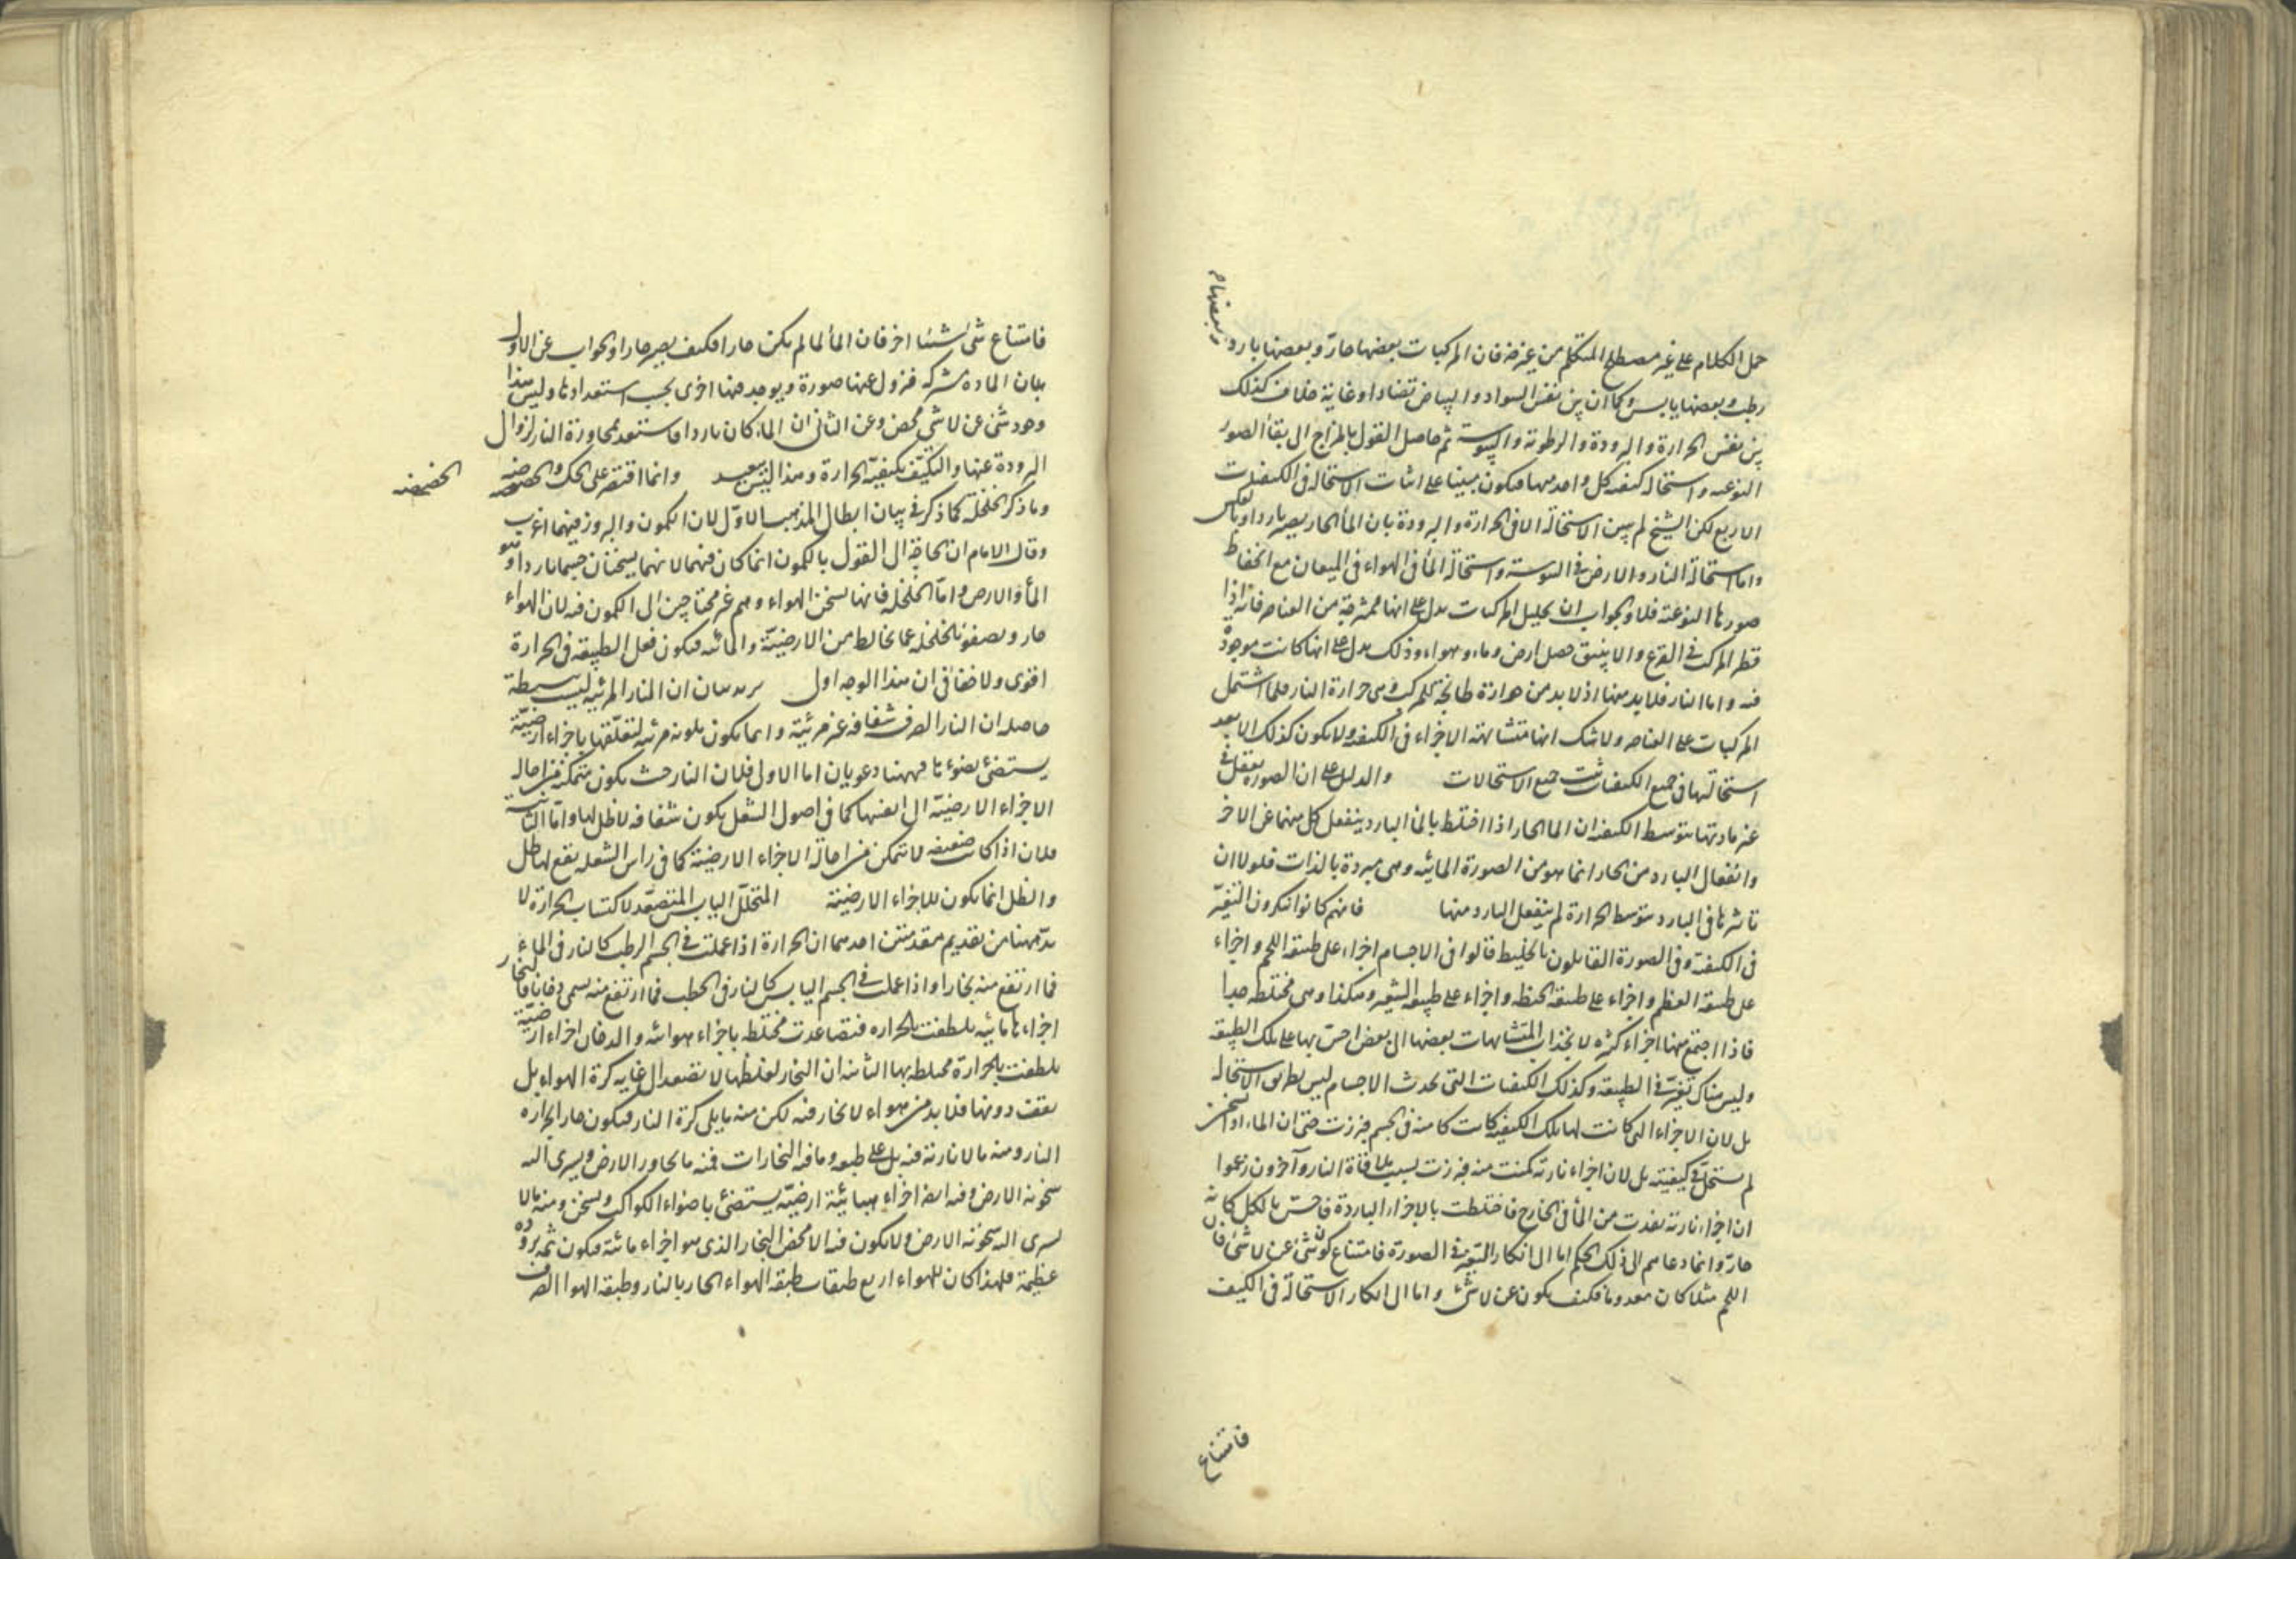 وبعضها م
حمل الكلام على غير مصطلح المتكلم من غير ضه فان المركبات بعضها حارّ وبعضها بارد
رطب وبعضها يابس وكما ان بين نفس السواد والبياض تضادا وغاية خلاف كذلك
بين نفس الحرارة والبرودة والرطوبة واليبوسة ثم حاصل القول بالمزاج الى بقاء الصور
النوعيه واستحالة كيفيه كل واحد منها فيكون مبينا على اثبات الاستحاله فى الكيفيات
الاربع لكن الشيخ لم يبين الاستحالة الا فى الحرارة والبرودة بان الماء الحار يصير باردا وبالعكس
واما استحالة النار والارض فى اليبوسة واستحالة الماء فى الهواء فى الميعان مع انحفاظ
صورها النوعية فلا والجواب ان تحليل المركبات يدل على انها ممتزجة من العناصر فانه اذا
قطر المركب فى القرع والانبيق حصل ارض وماء وهواء وذلك يدل على انها كانت موجودة
فيه واما النار فلا بد منها اذ لا بد من حرارة طابخة للمركب وهى حرارة النار فلما اشتمل
المركبات على العناصر ولا شك انها متشابهة الاجزاء فى الكيفيه ولا يكون كذلك الا بعد
استحالتها فى جميع الكيفيات ثبت جميع الاستحالات والدليل على ان الصورة تفعل فى
غير مادتها بتوسط الكيفيه ان الماء الحار اذا اختلط بالماء البارد ينفعل كل منهما عن الاخر
وانفعال البارد من الحار انما هو من الصورة المائيه وهى مبردة بالذات فلولا ان
تاثيرها فى البارد بتوسط الحرارة لم ينفعل البارد منها فانهم كانوا ينكرون التغيّر
فى الكيفية وفى الصورة القايلون بالخليط قالوا فى الاجسام اجزاء على طبيعة اللحم واجزاء
على طبيعة العظم واجزاء على طبيعة الحنطه واجزاء على طبيعه الشعير وهكذا وهى مختلطه جدا
فاذا اجتمع منها اجزاء كثيره لانجذاب المتشابهات بعضها الى بعض احس بها على تلك الطبيعه
وليس هناك تغيّر فى الطبيعه وكذلك الكيفيات التى تحدث الاجسام ليس بطريق الاستحاله
بل لان الاجزاء التى كانت لها تلك الكيفيه كانت كامنه فى الجسم فبرزت حتى ان الماء اذا تسخن
لم يستحل فى كيفيته بل لان اجزاء نارية كمنت منه فبرزت بسبب ملاقاة النار وآخرون زعموا
ان اجزاء نارية نفذت من الماء فى الخارج فاختلطت بالاجزاء الباردة فاحسّ بالكل كانه
حارّ وانما دعاهم الى ذلك الحكم اما الى انكار التغير فى الصورة فامتناع كون شئ عن لا شئ فان
اللحم مثلا كان معدوما فكيف يكون عن لا شئ واما الى انكار الاستحالة فى الكيف
فامتناع
فامتناع شئ شيئا اخر فان الماء لما لم يكن حارا فكيف يصير حارا والجواب عن الاول
بان الماده مشتركه فيزول عنها صورة ويوجد فيها اخرى بحسب استعداداتها وليس هذا
وجود شئ عن لا شئ محض وعن الثانى ان الماء كان باردا فاستعد بمجاورة النار لزوال
البرودة عنها والتكيّف بكيفيّة الحرارة وهذا ليس ببعيد وانما اقتصر على الحك والخضخضه
الخضخضه
وما ذكر الخلخلة كما ذكر فى بيان ابطال المذهب الاوّل لان الكمون والبروز فيهما اغرب
وقال الامام ان الحاجة الى القول بالكمون انما كان فيهما لانهما يسخنان جسما باردا وهو
الماء والارض واما الخلخله فانها تسخن الهواء وهم غير محتاجين الى الكمون فيه لان الهواء
حار وتصفيه الخلخله عما يخالطه من الارضيّة والمائيه فيكون فعل الطبيعه فى الحرارة
اقوى ولا خفا فى ان هذا الوجه اولى يريد بيان ان النار المرئيه ليست بسيطة
حاصله ان النار الصرف شفافه غير مرئية وانما يكون ملونه مرئيه لتعلّقها باجزاء ارضيّة
يستضئ بضوئها فههنا دعويان اما الاولى فلان النار حيث يكون متمكنة من احاله
الاجزاء الارضيّة الى نفسها كما فى اصول الشعل يكون شفافه لا ظل لها واما الثانية
فلان اذا كانت ضعيفه لا تتمكن من احالة الاجزاء الارضية كما فى راس الشعله يقع لها ظل
والظل انما يكون للاجزاء الارضية المتحلل اليابس المتصعّد لاكتساب الحرارة لا
بدّ ههنا من تقديم مقدمتين احدهما ان الحرارة اذا عملت فى الجسم الرطب كالنار فى الماء
فما ارتفع منه بخارا واذا عملت فى الجسم اليابس كالنار فى الحطب فما ارتفع منه يسمى دخانا فالبخار
اجزاء مائيه تلطفت بالحراره فتصاعدت مختلطه باجزاء هوائيه والدخان اجزاء ارضيّة
تلطفت بالحرارة مختلطه بها الثانيه ان البخار لغلظها لا تتصعد الى غايه كرة الهواء بل
تقف دونها فلا بد من هواء لا بخار فيه لكن منه ما يلى كرة النار فيكون حارا بحراره
النار ومنه ما لا نارية فيه بل على طبعه وما فيه البخارات فمنه ما يجاور الارض ويسرى اليه
سخونه الارض وفيه ايضا اجزاء هبائيّة ارضيّه يستضئ باضواء الكواكب ويسخن ومنه ما لا
يسرى اليه سخونه الارض ولا يكون فيه الا محض البخار الذى هو اجزاء مائية فيكون ثم بروده
عظيمة فلهذا كان للهواء اربع طبقات طبقه الهواء الحار بالنار وطبقه الهواء الصرف